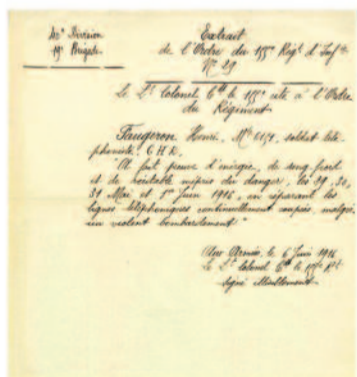 42e Division
19e Brigade
Extrait
de l'Ordre du 155e Régt d'Infie
No 29
Le Lt Colonel Ct le 155e cite à l'Ordre
du Régiment
Faugeron Henri, Mle soldat télé-
phoniste, C H R.
"A fait preuve d'énergie, de sang froid
et de véritable mépris du danger, les 29, 30,
31 Mai et 1er Juin 1916, en réparant les
lignes téléphoniques continuellement coupées, malgré
un violent bombardement"
Aux Armées, le 6 Juin 1916
Le Lt Colonel Ct le 155e Rt
signé